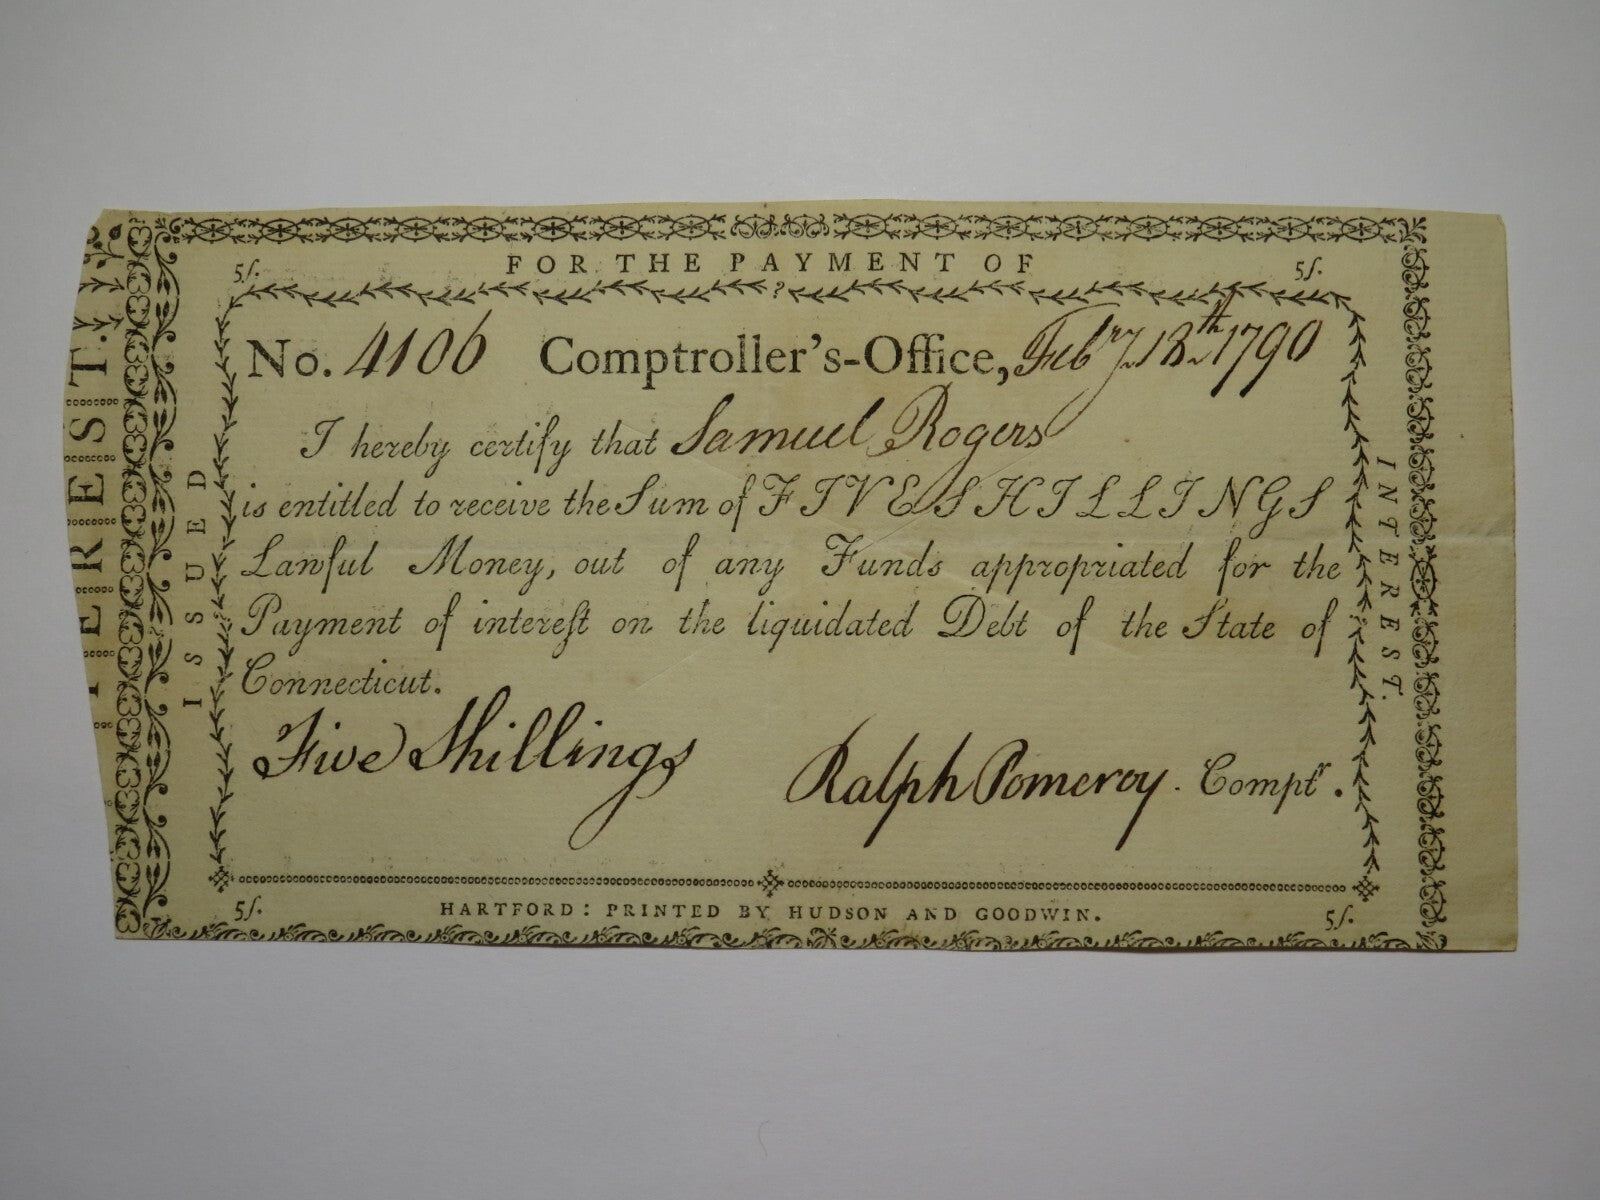 FOR THE PAYMENT OF
5ſ.
5ſ.
No. 4106 Comptroller's-Office, Febry. 18th 1790
I hereby certify that Samuel Rogers
is entitled to receive the Sum of FIVE SHILLINGS
Lawful Money, out of any Funds appropriated for the
Payment of intereſt on the liquidated Debt of the State of
Connecticut.
Five Shillings
Ralph Pomeroy. Comptr.
5ſ.
HARTFORD: PRINTED BY HUDSON AND GOODWIN.
5ſ.
ISSUED
INTEREST.
TEREST.